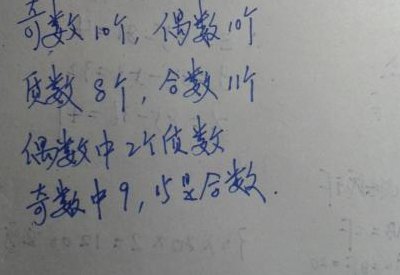 奇数10个,偶数10个
质数8个,合数11个
偶数中2个质数
奇数中9,15是合数.